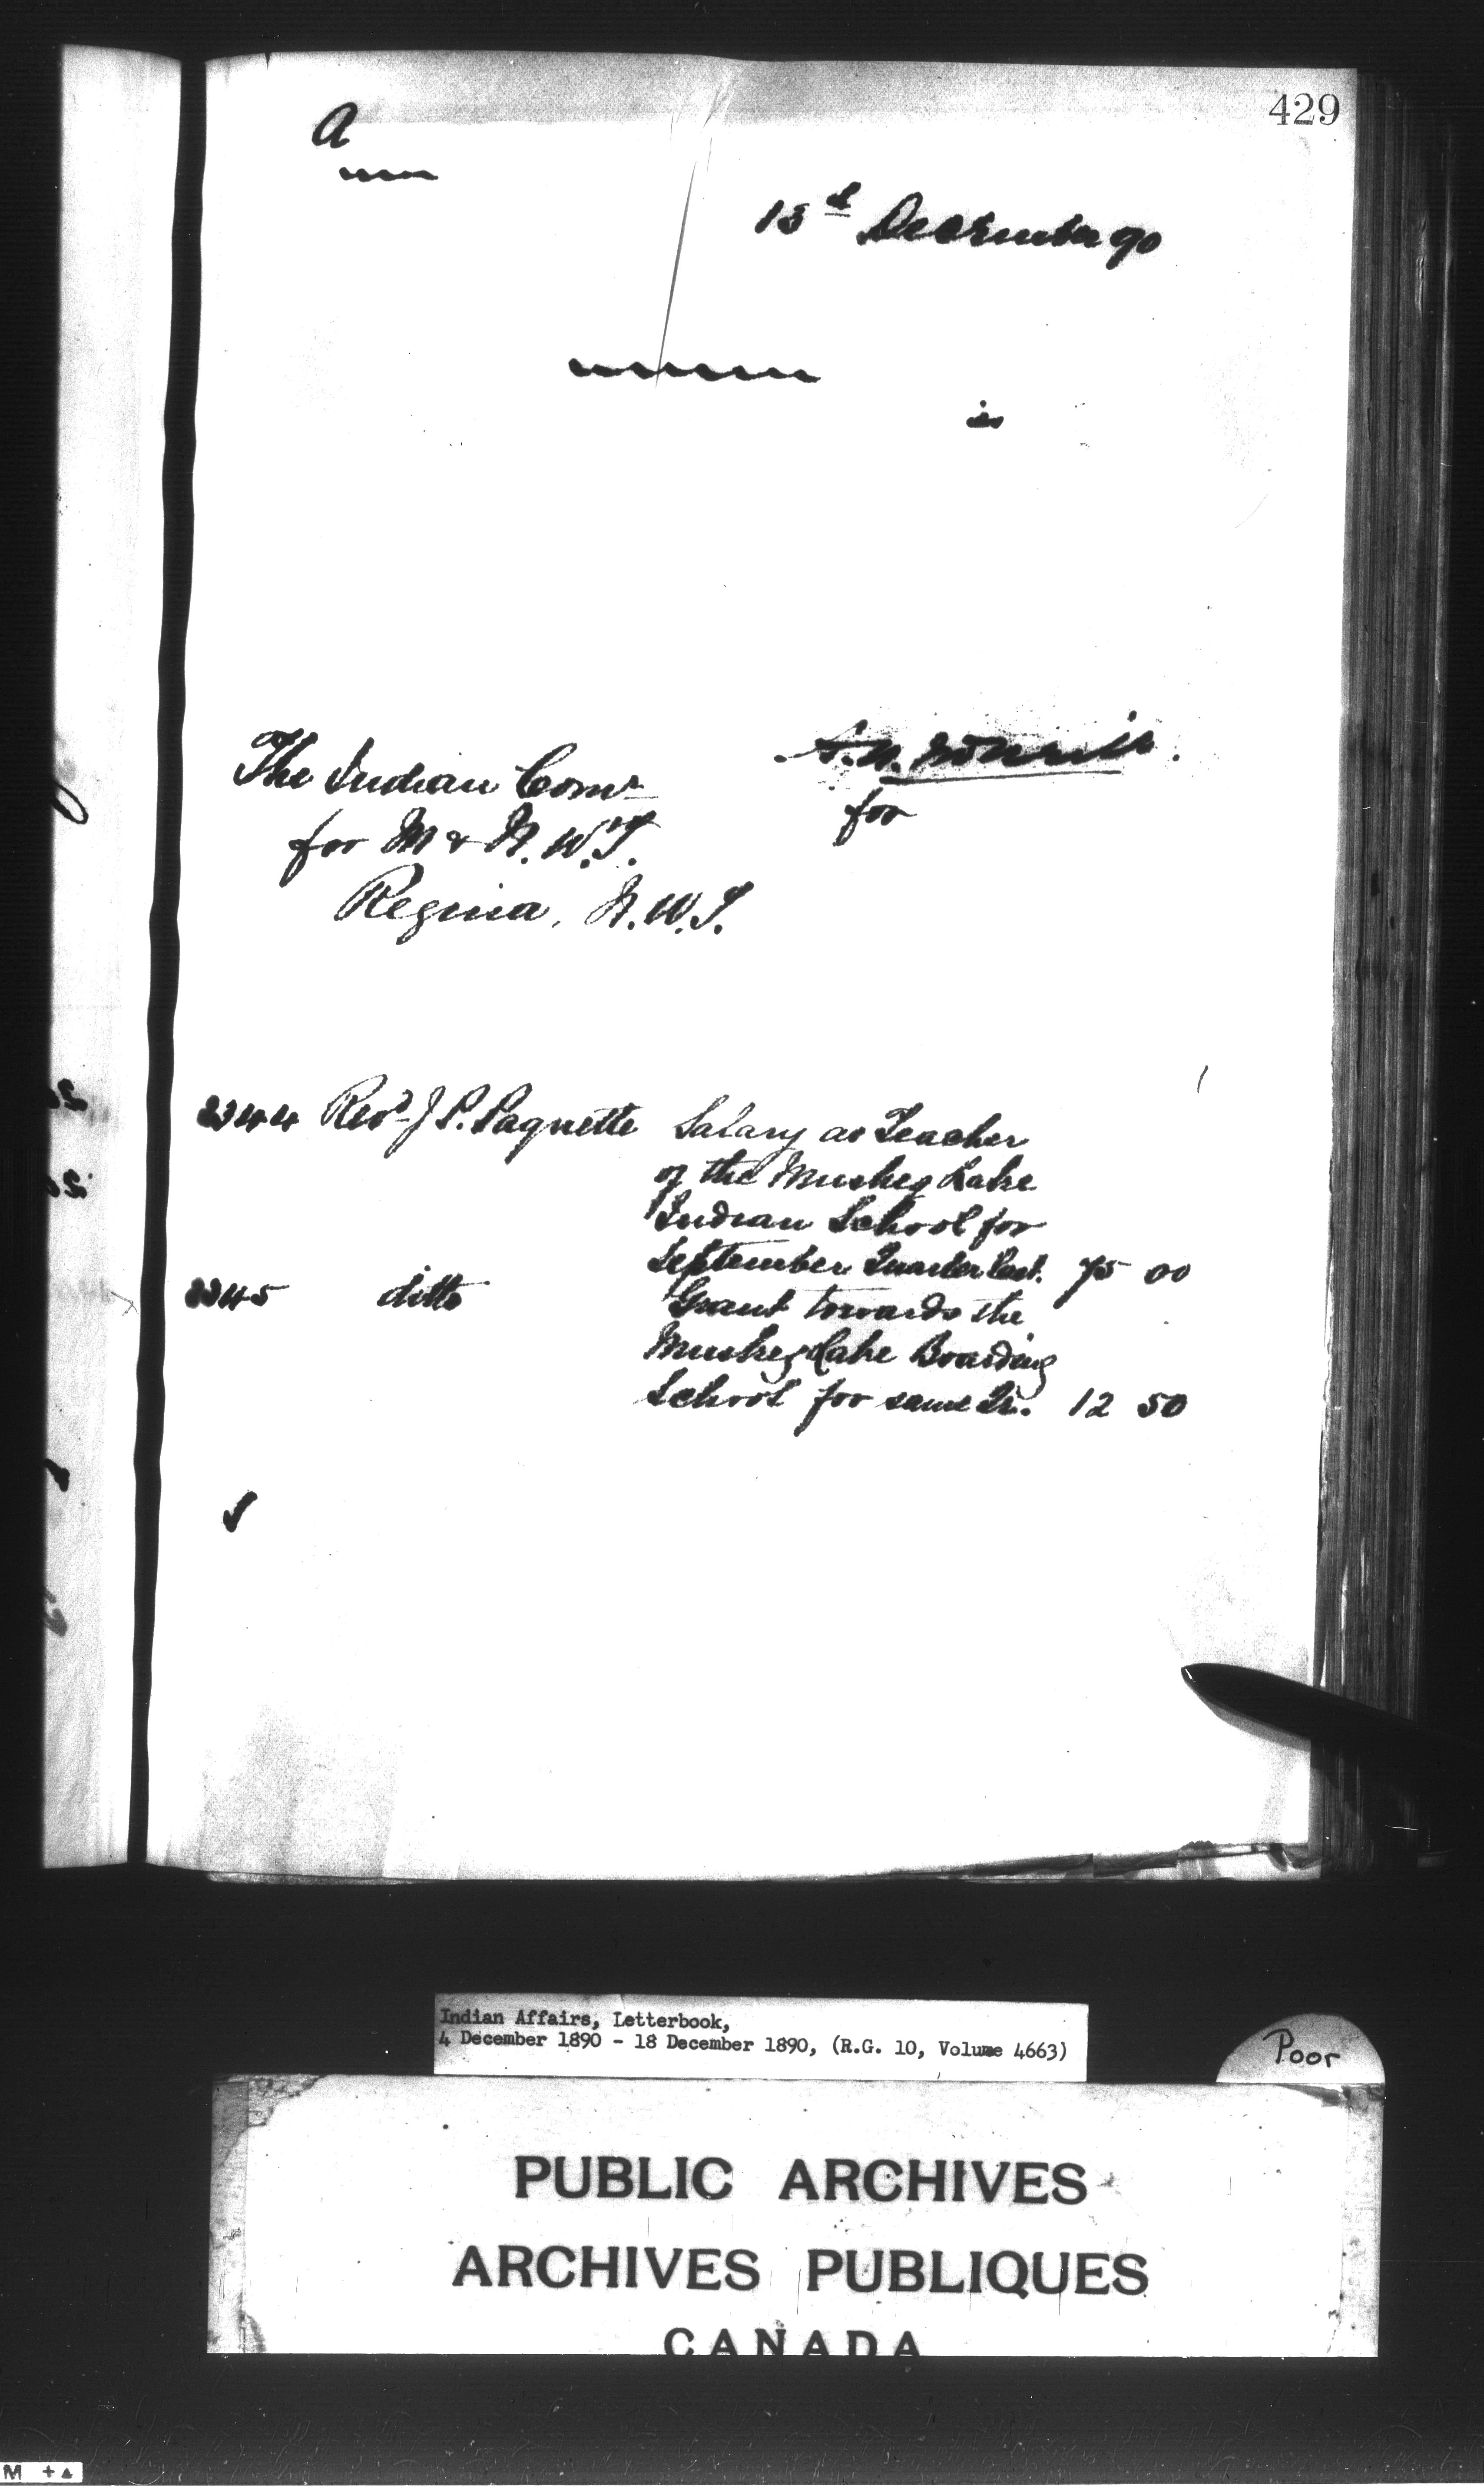 429
A
13th December 90
is
The Indian Comr
for M & N. W. T.
Regina, N. W. T.
for
2344 Revd J. P. Paquette Salary as Teacher
of the Muskeg Lake
Indian School for
September Quarter last. 75 00
2345 ditto Grant towards the
Muskeg Lake Boarding
School for same Qr. 12 50
Indian Affairs, Letterbook,
4 December 1890 - 18 December 1890, (R.G. 10, Volume 4663)
Poor
PUBLIC ARCHIVES
ARCHIVES PUBLIQUES
CANADA
M +